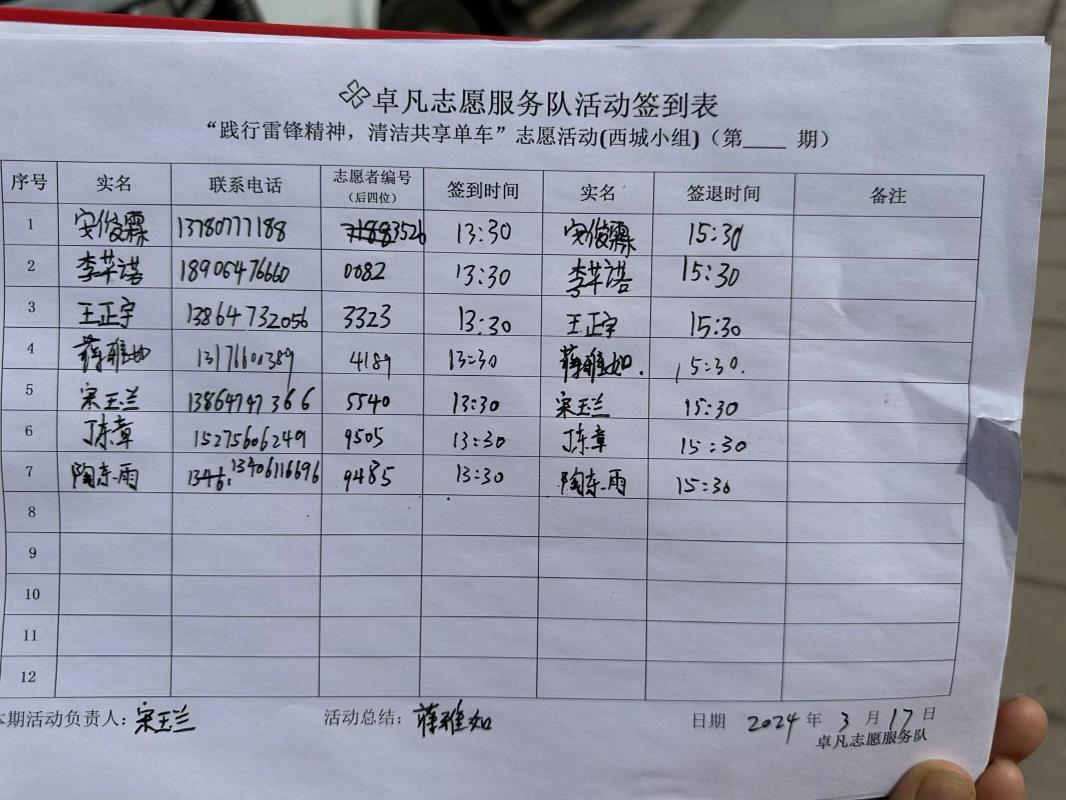 卓凡志愿服务队活动签到表
“践行雷锋精神，清洁共享单车”志愿活动(西城小组)（第____ 期）
序号 实名 联系电话 志愿者编号（后四位） 签到时间 实名 签退时间 备注
1 安俊霖 13780777188 3526 13:30 安俊霖 15:30
2 李苹诺 18905476660 0082 13:30 李苹诺 15:30
3 王正宇 13864732056 3323 13:30 王正宇 15:30
4 蒋雅如 4189 13:30 蒋雅如. 15:30.
5 宋玉兰 13864747366 5540 13:30 宋玉兰 15:30
6 丁东章 15275606249 9505 13:30 丁东章 15:30
7 陶东雨 13406116696 9485 13:30 陶东雨 15:30
8
9
10
11
12
本期活动负责人：宋玉兰 活动总结：蒋雅如 日期 2024 年 3 月 17 日
卓凡志愿服务队